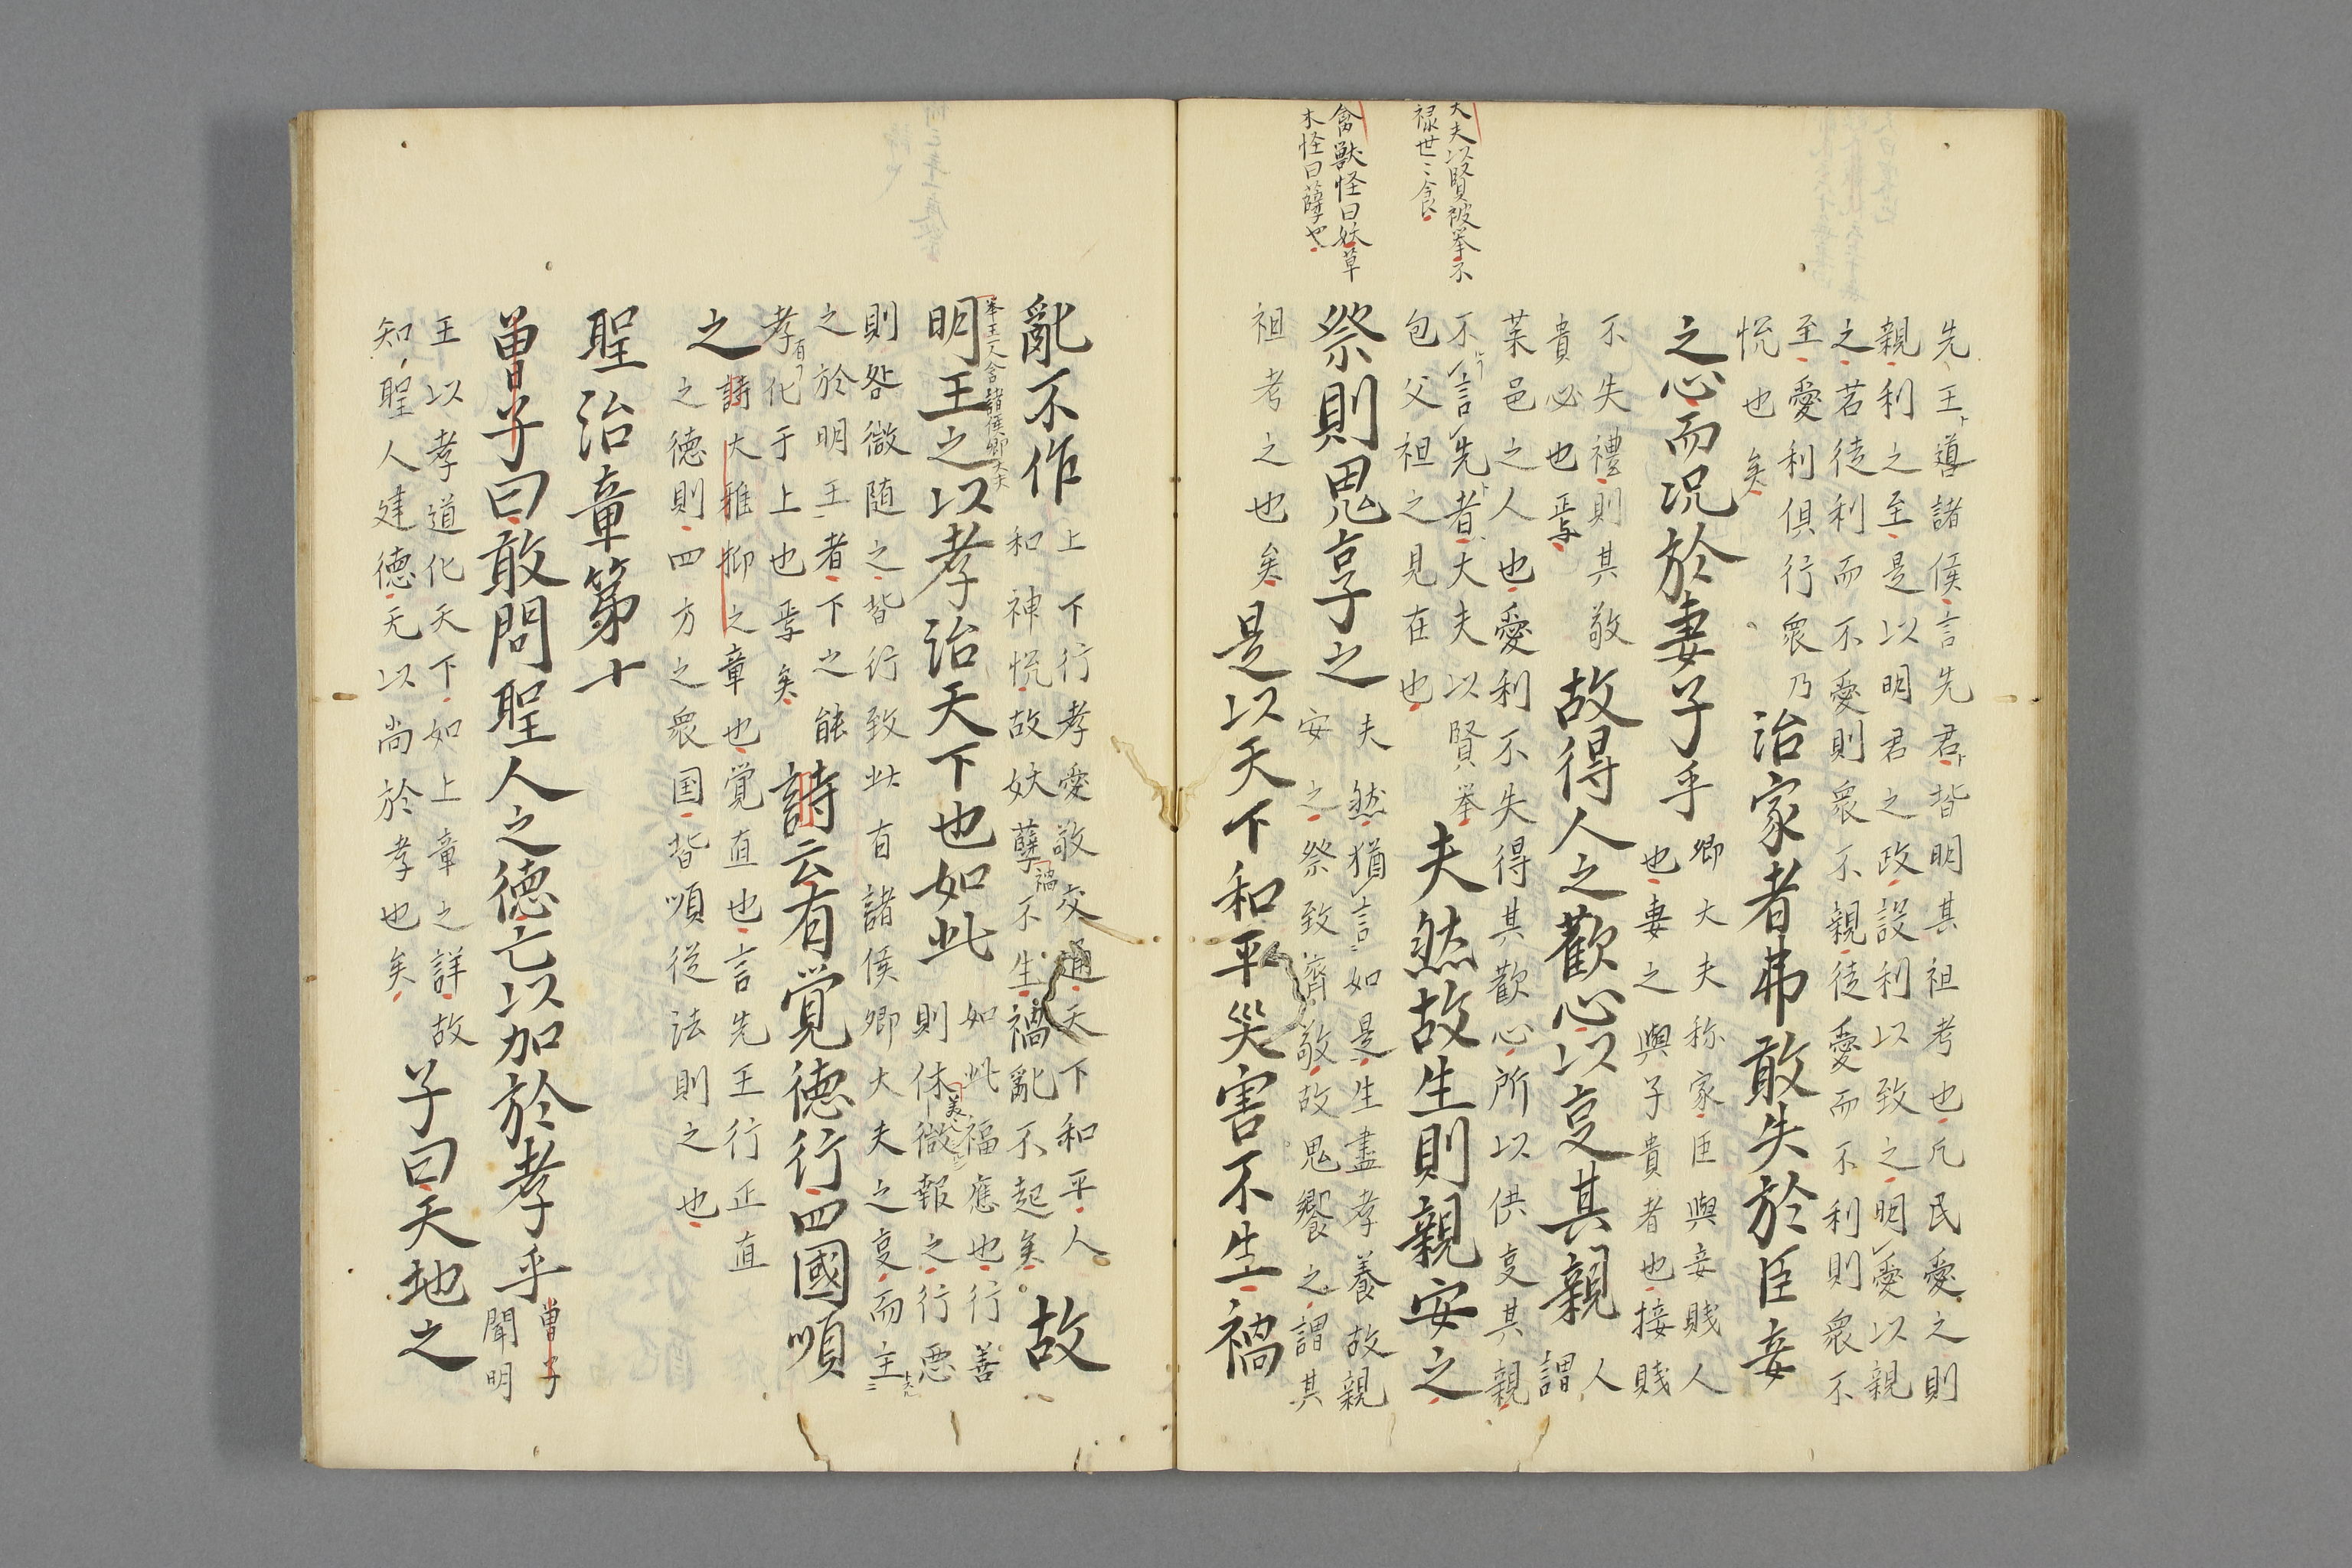 大夫以賢被挙不
禄世〻食
禽獣怪曰妖草
木怪曰孽也
先王導諸侯言先君皆明其祖考也凡民愛之則
親利之至是以明君之政設利以致之明愛以親
之若徒利而不愛則衆不親徒愛而不利則衆不
至愛利俱行衆乃
悦也矣
治家者弗敢失於臣妾
之心而况於妻子乎
卿大夫称家臣與妾賤人
也妻之與子貴者也接賤
不失禮則其敬
貴必也焉
故得人之歡心以㕝其親
人謂
菜邑之人也愛利不失得其歡心所以供㕝其親
不言先者大夫以賢挙
包父祖之見在也
夫然故生則親安之
祭則鬼享之
夫然猶言如是生盡孝養故親
安之祭致齊敬故鬼饗之謂其
祖考之也矣
是以天下和平災害不生禍
亂不作
上下行孝愛敬交通天下和平人
和神悦故妖孽不生禍亂不起矣
禍
故
明王之以孝治天下也如此
如此福應也行善
則休徴報之行悪
美
挙王人含諸侯卿大夫
則咎徴随之皆行致此有諸侯卿大夫之㕝而主
之於明王者下之能
孝化于上也焉矣
詩云有覚徳行四國順
之
詩大雅抑之章也覚直也言先王行正直
之徳則四方之衆国皆順従法則之也
聖治章第十
曽子曰敢問聖人之徳亡以加於孝乎
曽子
聞明
王以孝道化天下如上章之詳故
知聖人建徳无以尚於孝也矣
子曰天地之